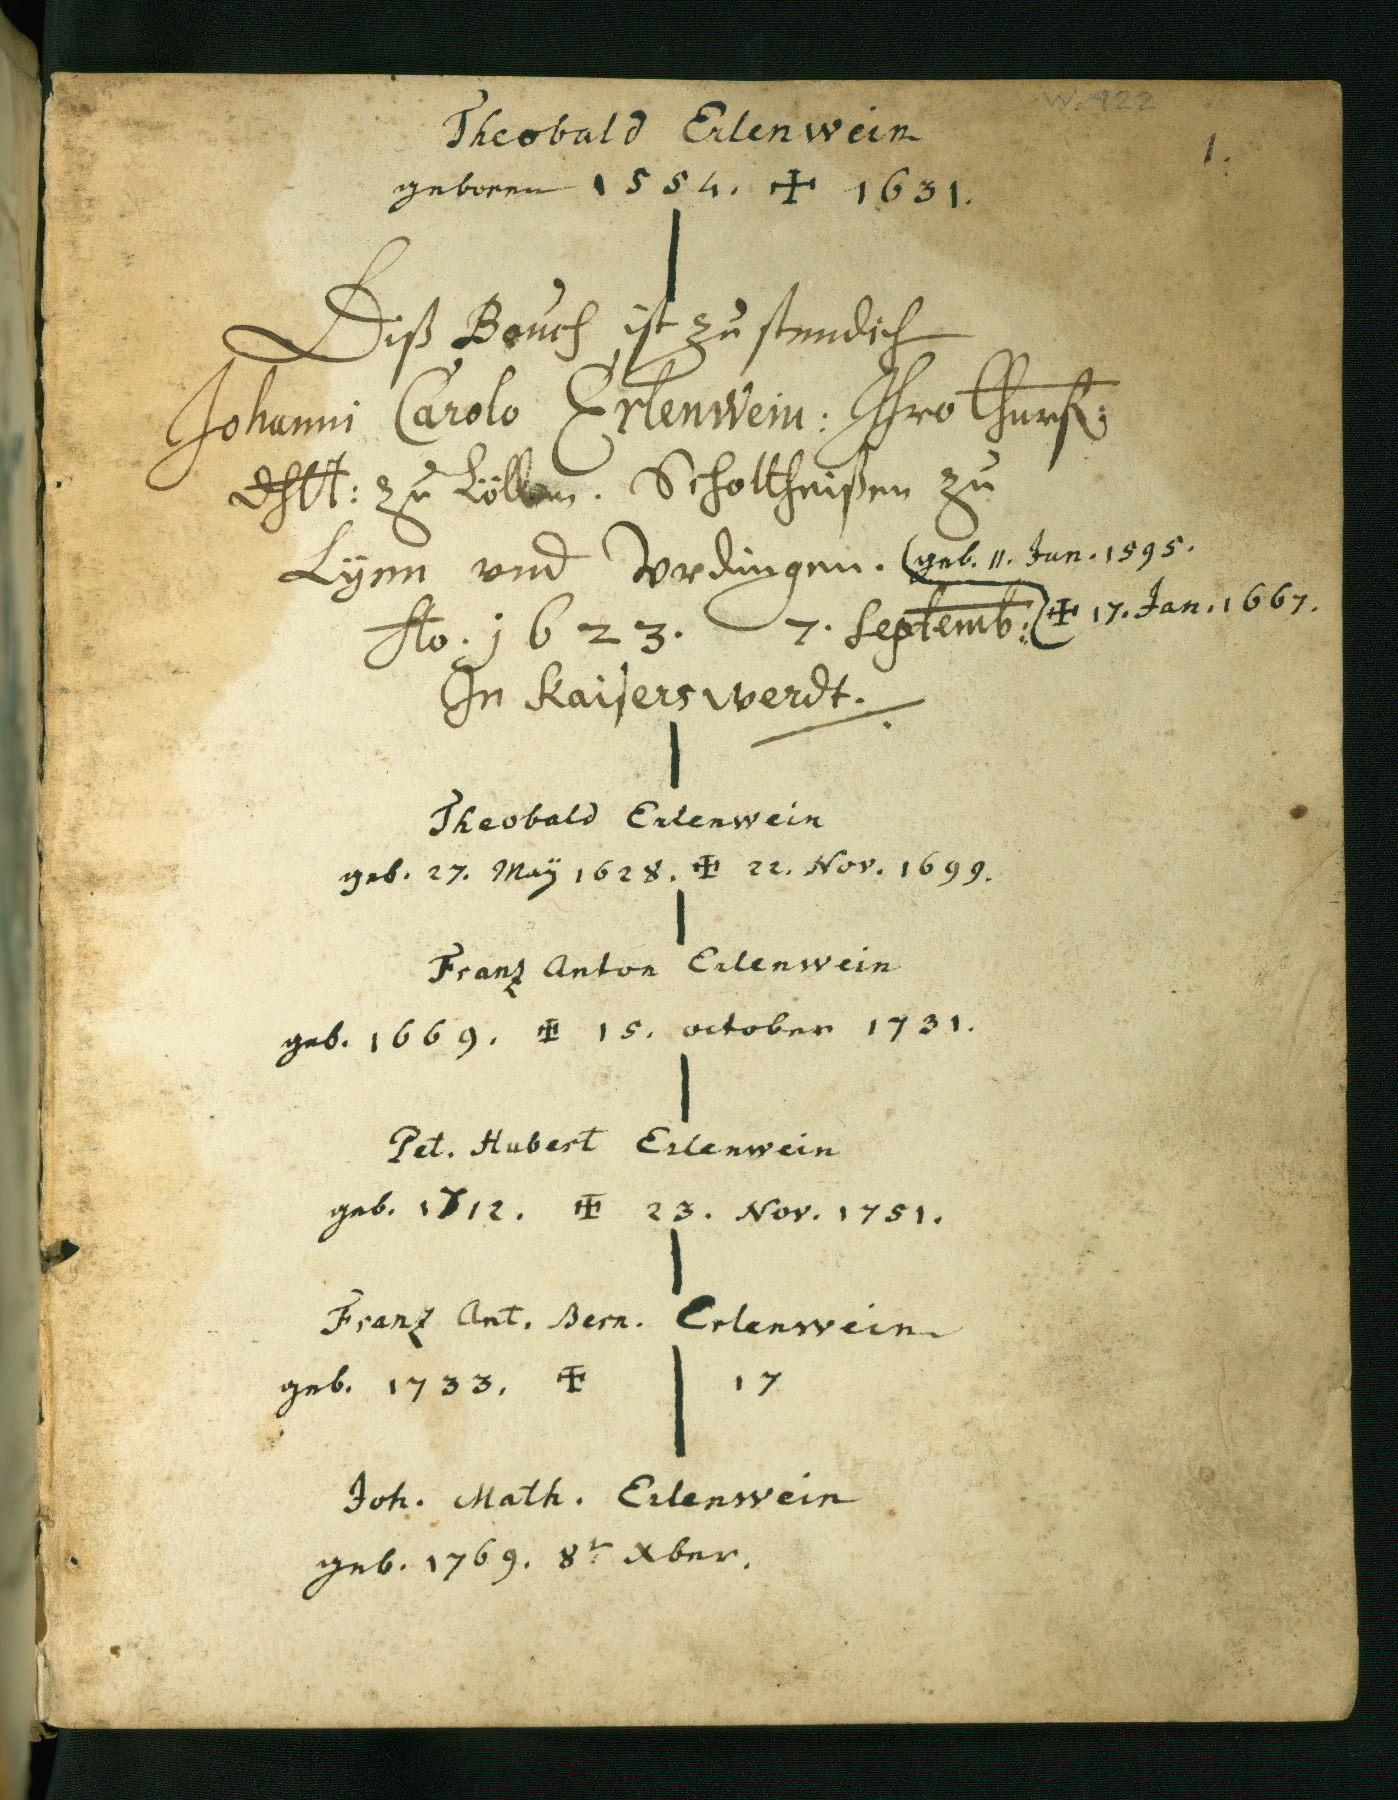 W. 922
1.
Theobald Erlenwein
geboren 1554. ✠ 1631.
Diß Bouch ist zustendich
Johanni Carolo Erlenwein: Ihro Churf:
dhltt: zu Cöllen. Scholtheißen zu
Lÿnn vnd Vrdingen. (geb. 11. Jun. 1595.
Ao. 1623. 7. Septemb: ✠ 17. Jan. 1667.
In Kaiserswerdt.
Theobald Erlenwein
geb. 27. Maÿ 1628. ✠ 22. Nov. 1699.
Franz Anton Erlenwein
geb. 1669. ✠ 15. october 1731.
Pet. Hubert Erlenwein
geb. 1712. ✠ 23. Nov. 1751.
Franz Ant. Bern. Erlenwein
geb. 1733. ✠ 17
Joh. Math. Erlenwein
geb. 1769. 8t Xber.